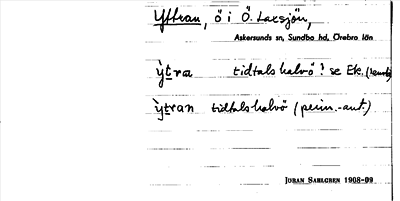 Yttran, ö i Ö. Laxsjön,
Askersunds sn, Sundbo hd, Örebro län
ỳtra tidtals halvö! se Ek.
ỳtran tidtals halvö (pein.-ant.)
JÖRAN SAHLGREN 1908-09